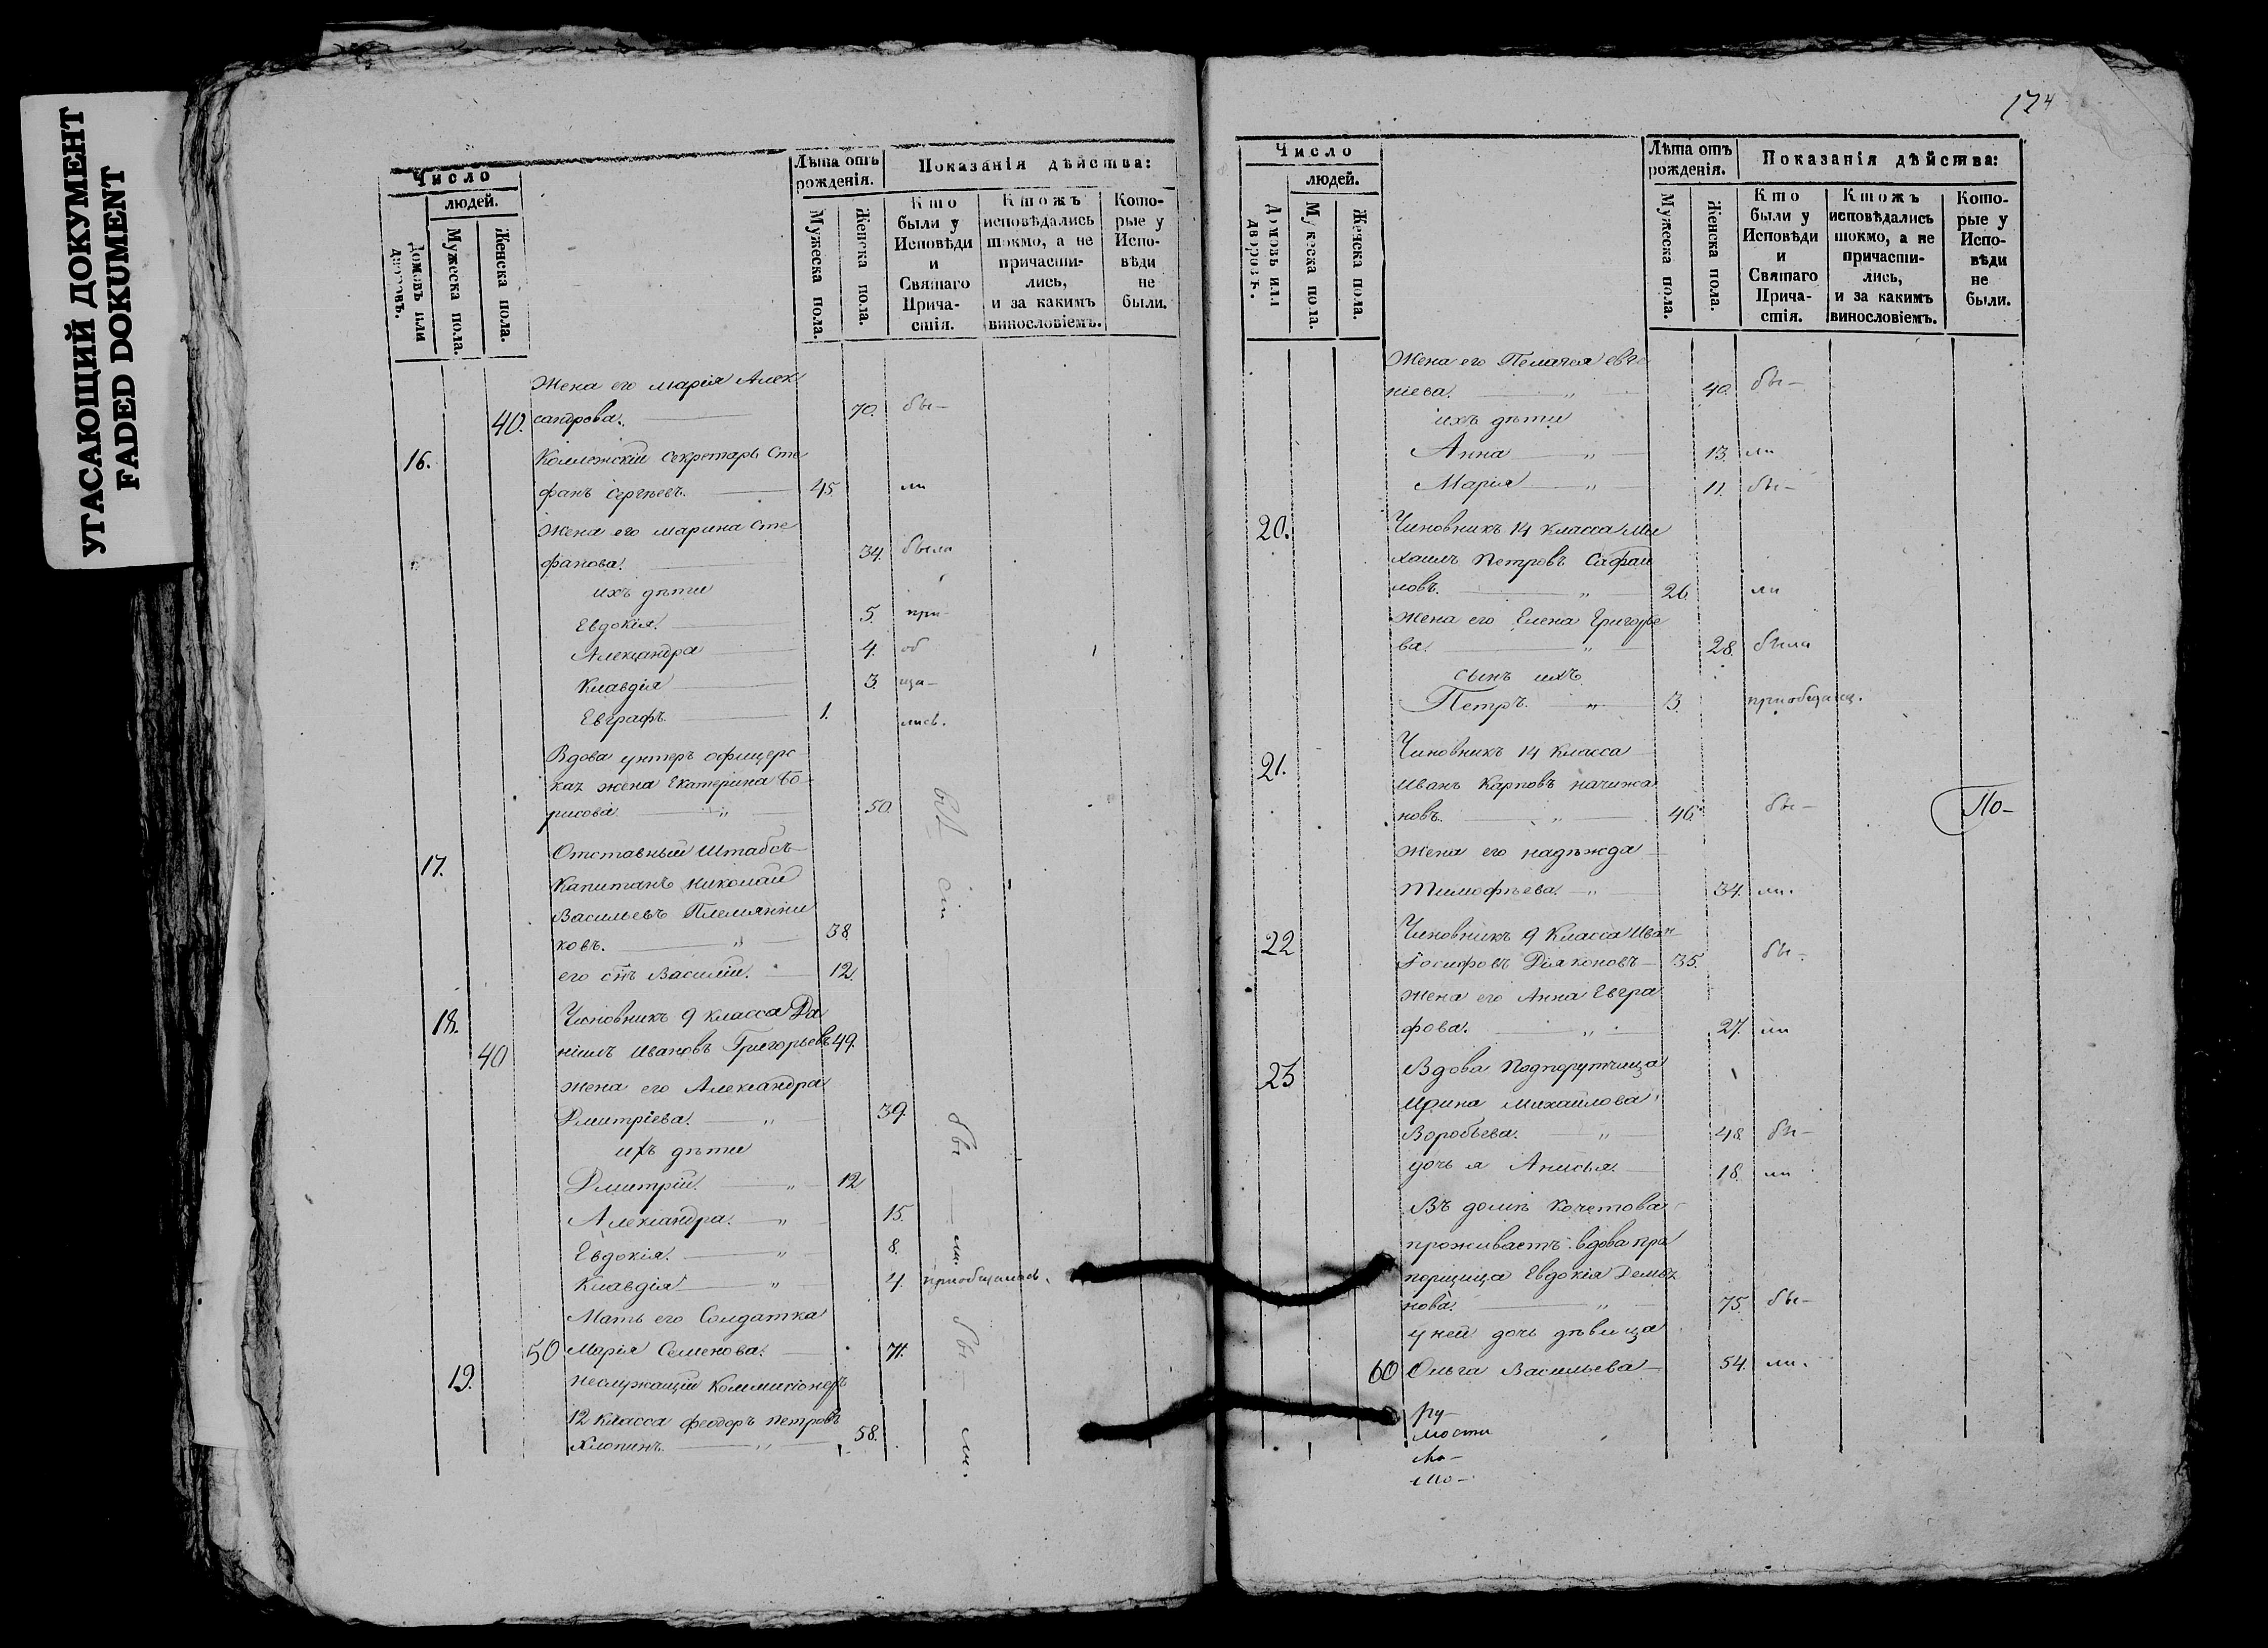 УГАСАЮЩИЙ ДОКУМЕНТ
FADED DOKUMENT
Число
людей.
Домовъ или дворовъ.
Мужеска пола.
Женска пола.
Лѣта отъ рожденія.
Мужеска пола.
Женска пола.
Показанія дѣйства:
Кто были у Исповѣди и Святаго Прича-стія.
Ктожъ исповѣдались токмо, а не причасти-лись, и за какимъ винословіемъ.
Кото-рые у Испо-вѣди не были.
Жена его Марія Алек
40. сандрова. 70. бы-
16. Коллежскій Секретарь Сте
фанъ Сергѣевъ. 45 ли
Жена его Марина Сте
фанова. 34. была
ихъ дѣти
Евдокія. 5. при-
Александра 4. об
Клавдія 3. ща-
Евграфъ. 1. лись.
Вдова унтеръ офицерс
каꙗ жена Екатерина Бо-
рисова 50. бы
17. Отставный Штабсъ
Капитанъ Николай
Васильевъ Племянни
ковъ. 38.
его сн̃ъ Василій. 12.
18. Чиновникъ 9 класса Да
40 ніилъ Ивановъ Григорьевъ 49.
жена его Александра
Дмитріева. 39. бы
ихъ дѣти
Дмитрій. 12
Александра. 15.
Евдокія. 8. ли.
Клавдія 4. приобщалась.
Мать его Солдатка
50 Марія Семенова. 71. бы-
19. неслужащій Коммисіонеръ
12 класса Феодоръ Петровъ
Хлопинъ. 58. ли.
174
Число
людей.
Домовъ или дворовъ.
Мужеска пола.
Женска пола.
Лѣта отъ рожденія.
Мужеска пола.
Женска пола.
Показанія дѣйства:
Кто были у Исповѣди и Святаго Прича-стія.
Ктожъ исповѣдались токмо, а не причасти-лись, и за какимъ винословіемъ.
Кото-рые у Испо-вѣди не были.
Жена его Пелагея Евге
ніева. 40. бы-
ихъ дѣти
Анна 13. ли
Марія 11. бы-
20. Чиновникъ 14 класса Ми
хаилъ Петровъ Сафаи
ловъ. 26. ли
Жена его Елена Григорье
ва. 28. была
сынъ ихъ
Петръ. 3. приобщалц.
21. Чиновникъ 14 класса
Иванъ Карповъ
новъ. 46. бы- По-
Жена его Надѣжда
Тимофѣева. 34. ли.
22 Чиновникъ 9 Класса Иван
Іосифовъ Діяконовъ 35. бы-
Жена его Анна Евгра
фова. 27. ли
23 Вдова Подпорутчица
Ирина Михайлова
Воробьева. 48. бы-
дочь я Анисья. 18. ли
Въ домѣ Кочетова
проживаетъ вдова пра
порщица Евдокія Демьꙗ
нова. 75. бы-
у ней дочь дѣвица
60 Ольга Васильева 54. ли.
Ру-
мости